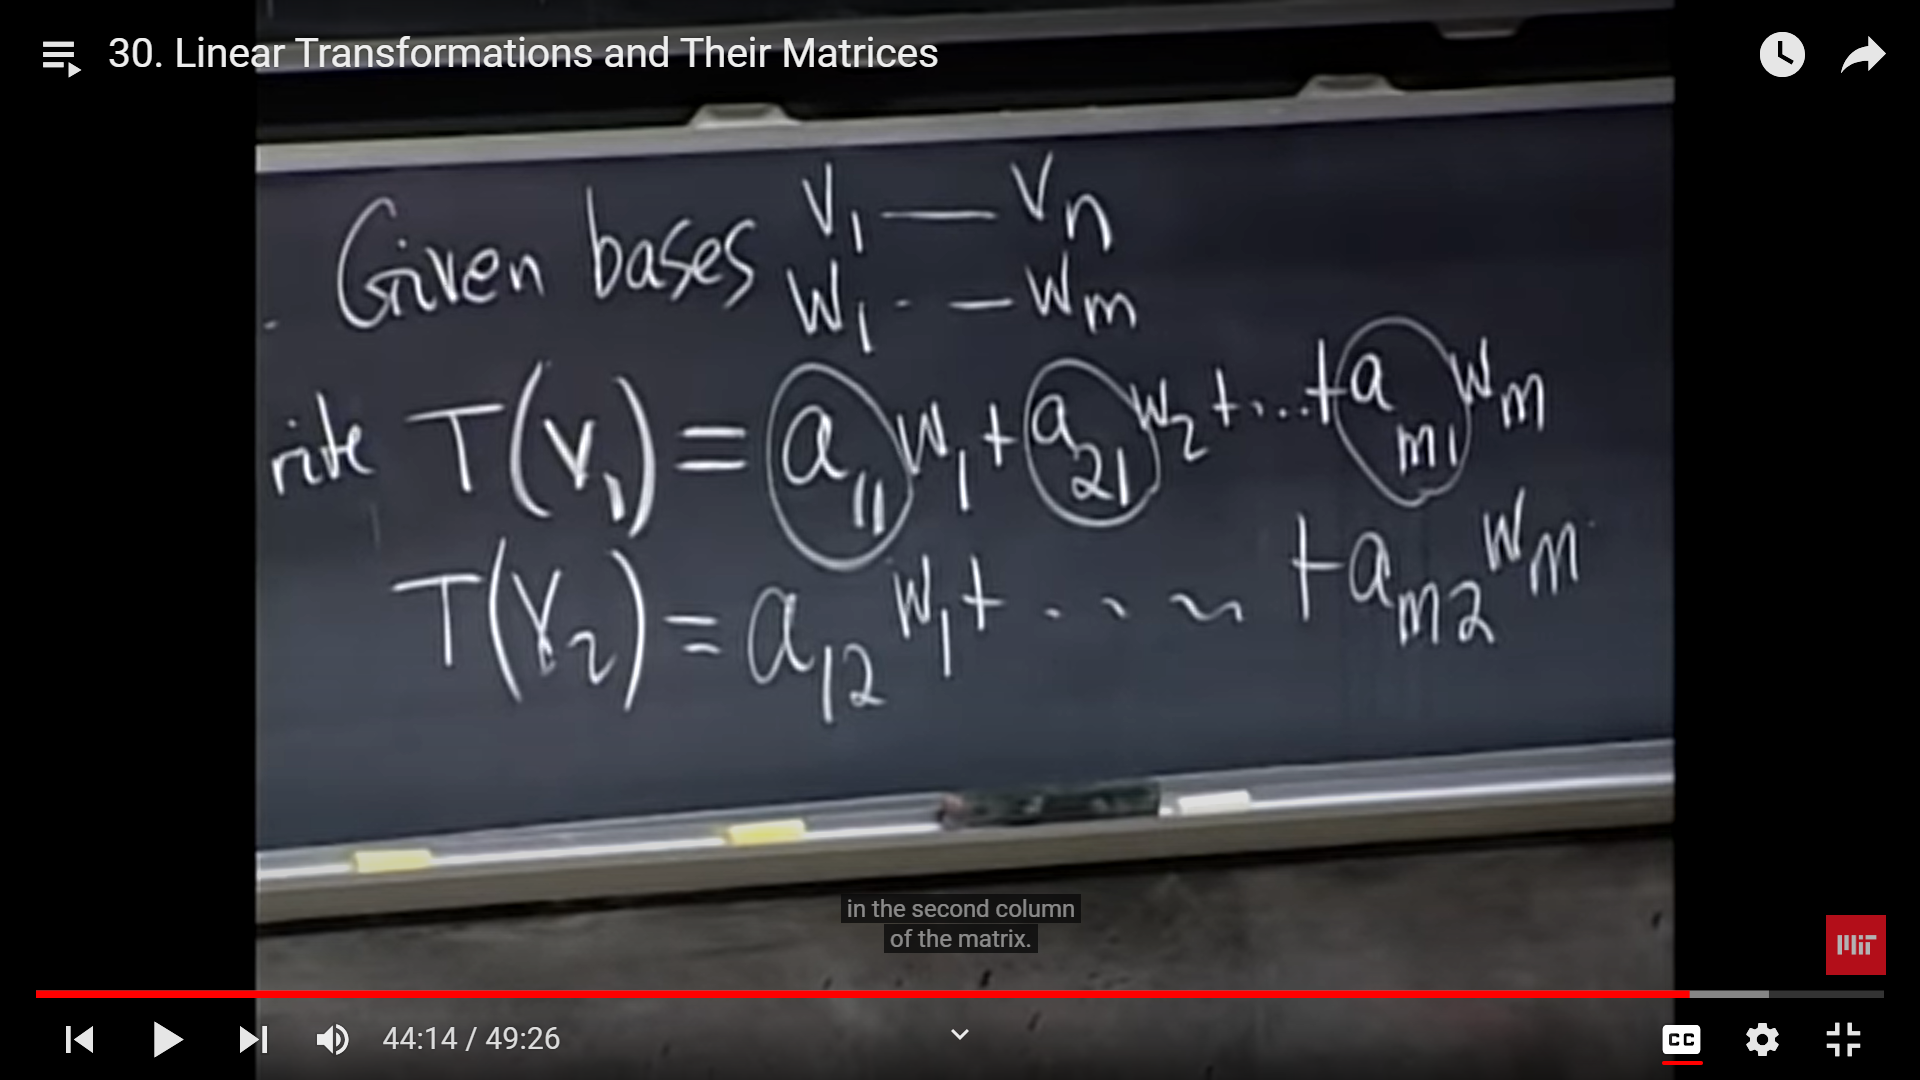 30. Linear Transformations and Their Matrices
Given bases v₁ — vₙ
w₁ - — wₘ
rite T(v₁) = a₁₁w₁ + a₂₁w₂ + ... + aₘ₁wₘ
T(v₂) = a₁₂w₁ + .... + aₘ₂wₘ
in the second column
of the matrix.
MIT
44:14 / 49:26
CC